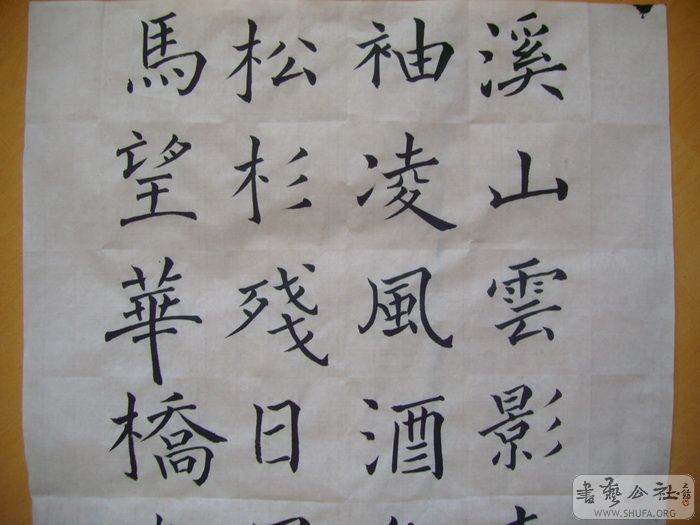 溪山雲影
袖凌風酒
松杉殘日
馬望華橋
書藝公社
WWW.SHUFA.ORG